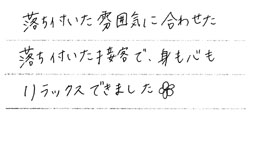 落ち付いた雰囲気に合わせた
落ち付いた接客で、身も心も
リラックスできました